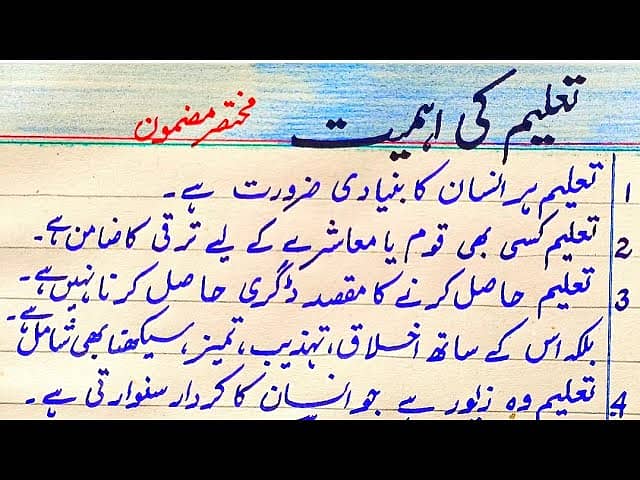 تعلیم کی اہمیت مختصر مضمون
1 تعلیم ہر انسان کا بنیادی ضرورت ہے۔
2 تعلیم کسی بھی قوم یا معاشرے کے لیے ترقی کا ضامن ہے۔
3 تعلیم حاصل کرنے کا مقصد ڈگری حاصل کرنا نہیں ہے۔
بلکہ اس کے ساتھ اخلاق، تہذیب، تمیز، سیکھنا بھی شامل ہے۔
4 تعلیم وہ زیور ہے جو انسان کا کردار سنوارتی ہے۔